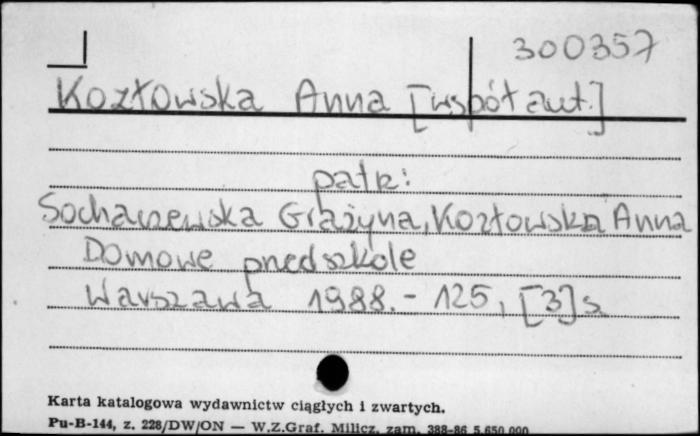 300357
Kozłowska Anna [współaut.]
patrz:
Sochaczewska Grażyna, Kozłowska Anna
Domowe przedszkole
Warszawa 1988.- 125, [3] s.
Karta katalogowa wydawnictw ciągłych i zwartych.
Pu-B-144, z. 228/DW/ON — W.Z.Graf. Milicz, zam. 388-86 5.650.000